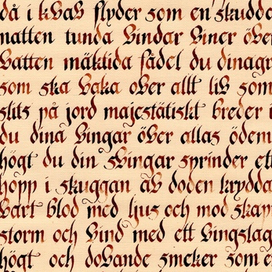 då i kvav flyder som en skudde
natten tunda vindar viner över
vatten mäktida fådel du dinagr
som ska vaka över allt liv som
slits på jord majestätiskt breder i
du dina vingar över allas öden
högt du din vingar sprinder ett
hopp i skuggan av döden krydda
vart blod med ljus och mod skap
storm och vind med ett vingslag
högt och dovande smeker som e